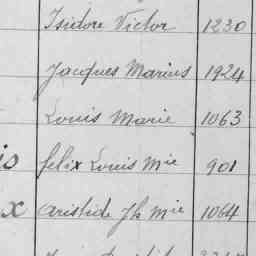 Isidore Victor 1230
Jacques Marius 1924
Louis Marie 1063
félix Louis Mie 901
x Aristide Jh Mie 1064